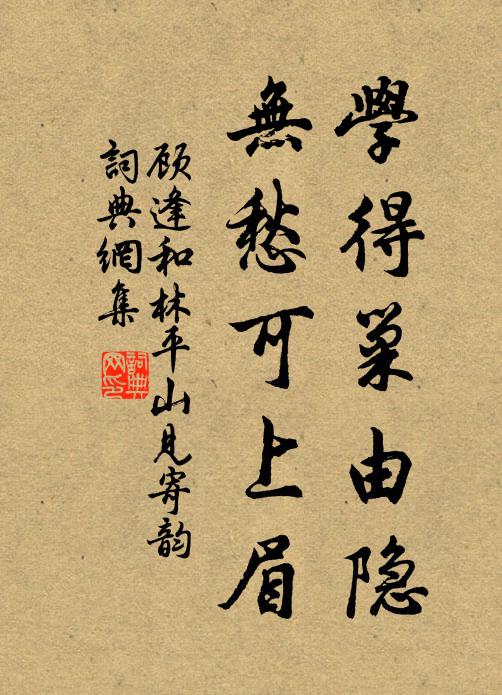 學得巢由隐
無愁可上眉
顾逢和林平山見寄韵
詞典網集
詞典网印